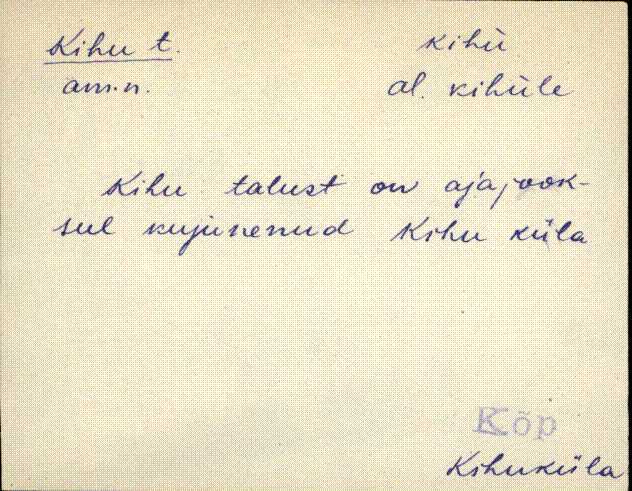 Kihu t. kihü
am.n. al. kihüle
Kihu talust on ajajook-
sul kujunenud Kihu küla
Kõp
Kihuküla